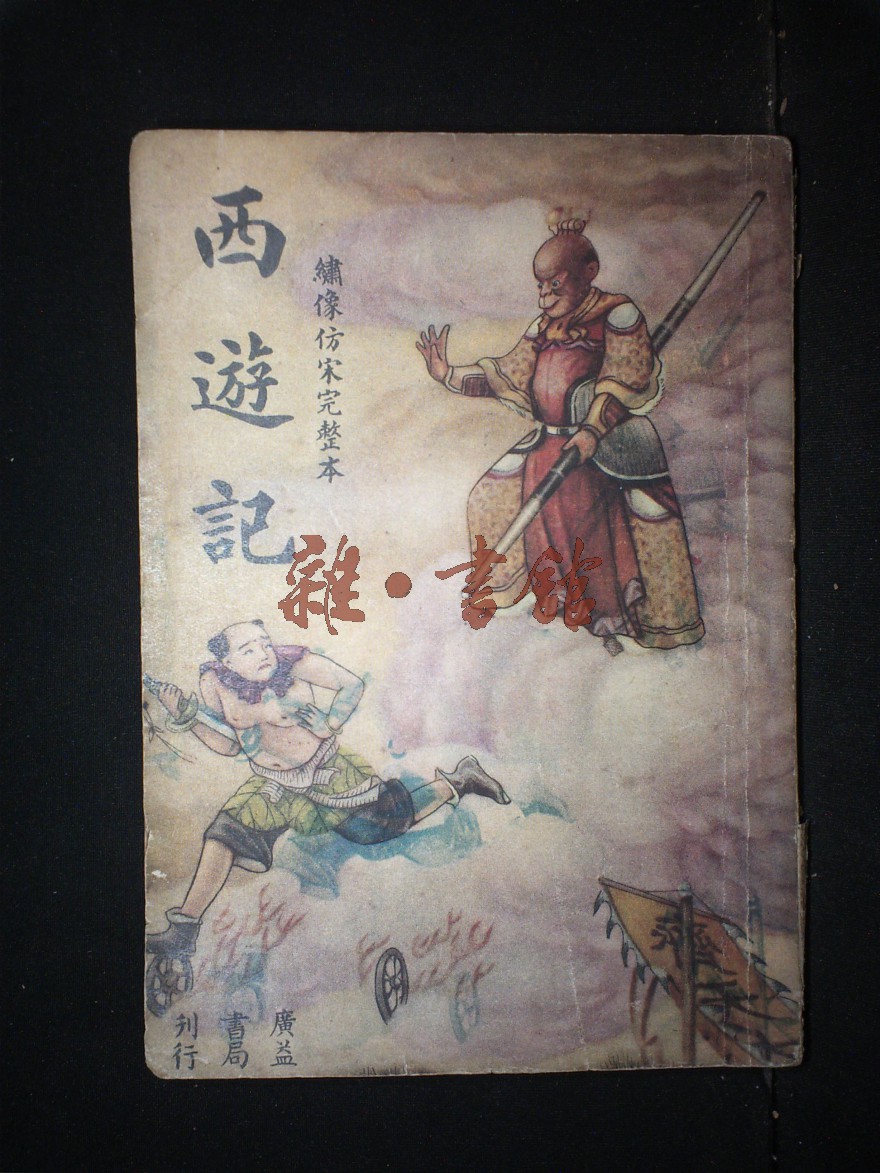 西遊記
繡像仿宋完整本
雜·書館
廣益
書局
刊行
齊